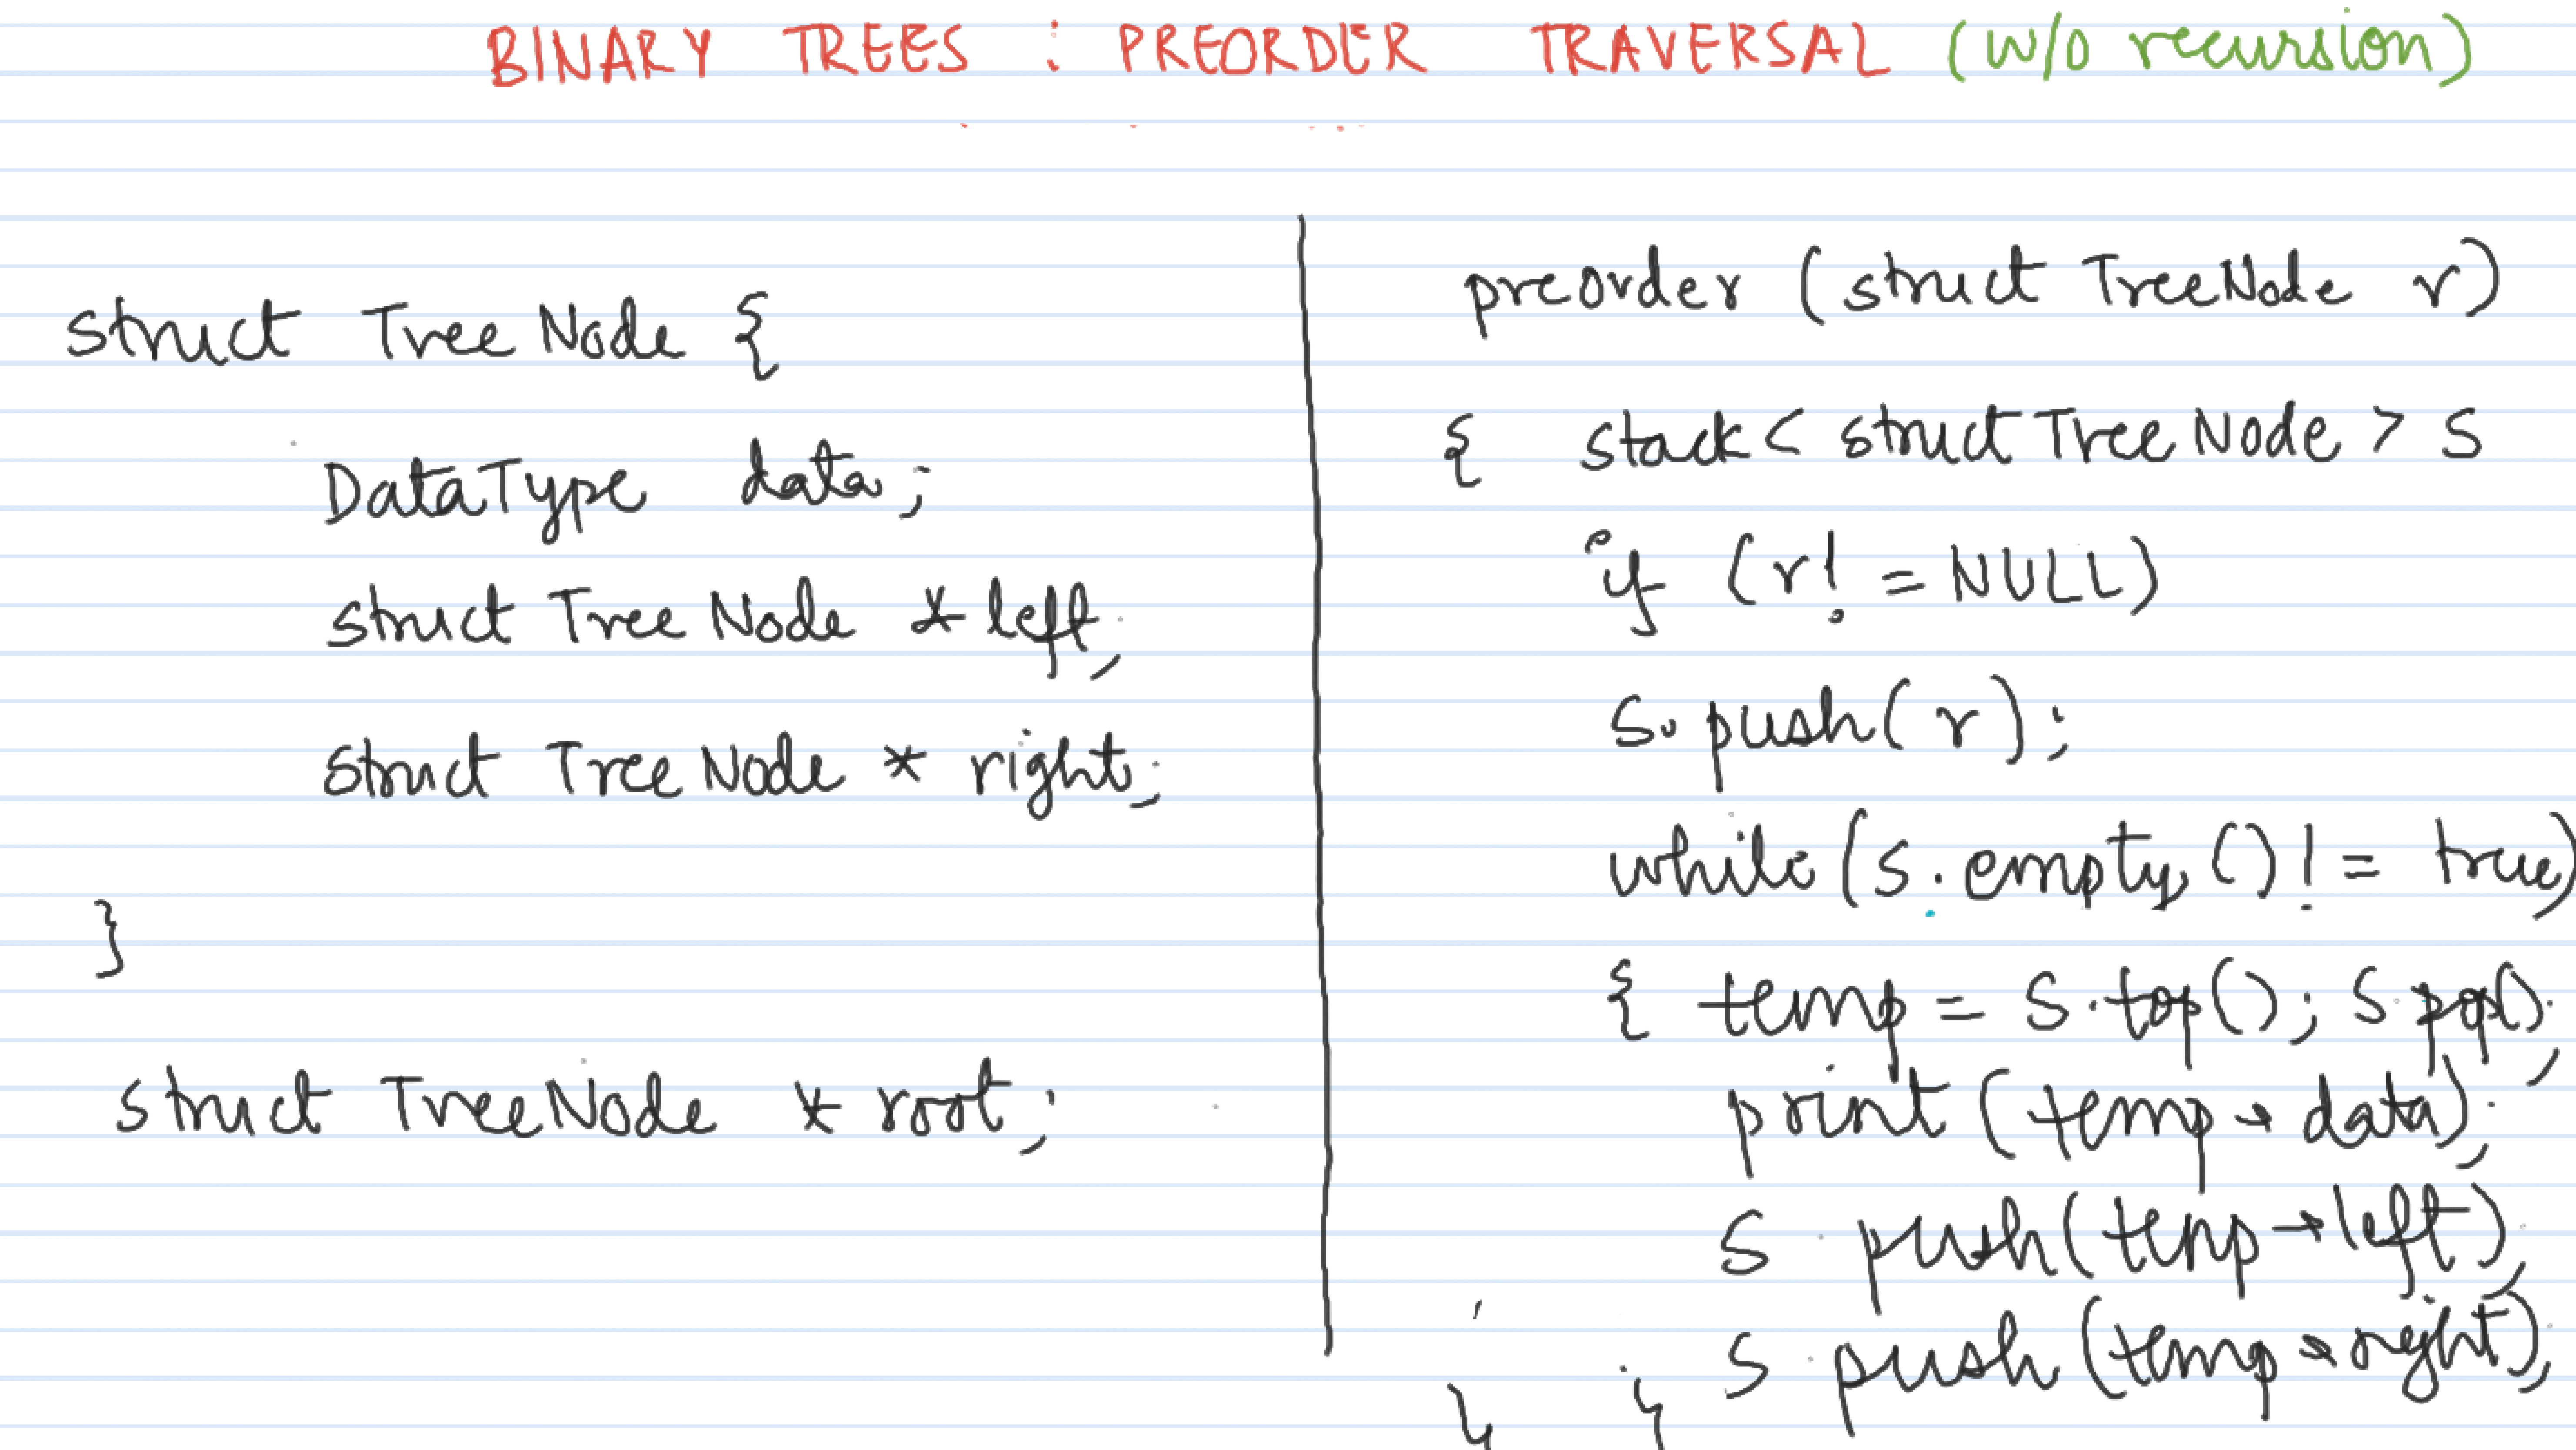 BINARY TREES : PREORDER TRAVERSAL (w/o recursion)
struct TreeNode {
DataType data;
struct TreeNode *left;
struct TreeNode * right;
}
struct TreeNode * root;
preorder (struct TreeNode r)
{ stack< struct TreeNode > s
if (r! = NULL)
s.push(r);
while (s.empty()! = true)
{ temp = s.top(); s.pop();
print (temp→data);
s.push(temp→left);
s.push(temp→right);
} }